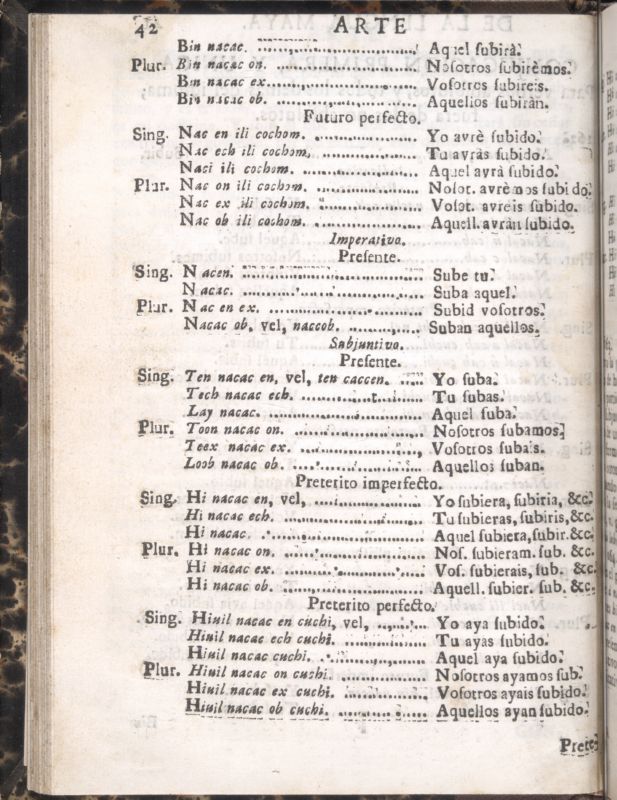 42 ARTE
Bin nacac. Aquel subirà.
Plur. Bin nacac on. Nosotros subirèmos.
Bin nacac ex. Vosotros subireis.
Bin nacac ob. Aquellos subiràn.
Futuro perfecto.
Sing. Nac en ili cochom. Yo avrè subido.
Nac ech ili cochom. Tu avràs subido.
Naci ili cochom. Aquel avrà subido.
Plur. Nac on ili cochom. Nosot. avrèmos subido.
Nac ex ili cochom. Vosot. avreis subido.
Nac ob ili cochom. Aquell. avràn subido.
Imperativo.
Presente.
Sing. Nacen. Sube tu.
Nacac. Suba aquel.
Plur. Nac en ex. Subid vosotros.
Nacac ob, vel, naccob. Suban aquellos.
Subjuntivo.
Presente.
Sing. Ten nacac en, vel, ten caccen. Yo suba.
Tech nacac ech. Tu subas.
Lay nacac. Aquel suba.
Plur. Toon nacac on. Nosotros subamos.
Teex nacac ex. Vosotros subais.
Loob nacac ob. Aquellos suban.
Preterito imperfecto.
Sing. Hi nacac en, vel, Yo subiera, subiria, &c.
Hi nacac ech. Tu subieras, subiris, &c.
Hi nacac. Aquel subiera, subir. &c.
Plur. Hi nacac on. Nos. subieram. sub. &c.
Hi nacac ex. Vos. subierais, sub. &c.
Hi nacac ob. Aquell. subier. sub. &c.
Preterito perfecto.
Sing. Hiuil nacac en cuchi, vel, Yo aya subido.
Hiuil nacac ech cuchi. Tu ayas subido.
Hiuil nacac cuchi. Aquel aya subido.
Plur. Hiuil nacac on cuchi. Nosotros ayamos sub.
Hiuil nacac ex cuchi. Vosotros ayais subido.
Hiuil nacac ob cuchi. Aquellos ayan subido.
Prete-